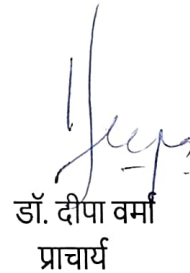 डॉ. दीपा वर्मा
प्राचार्य